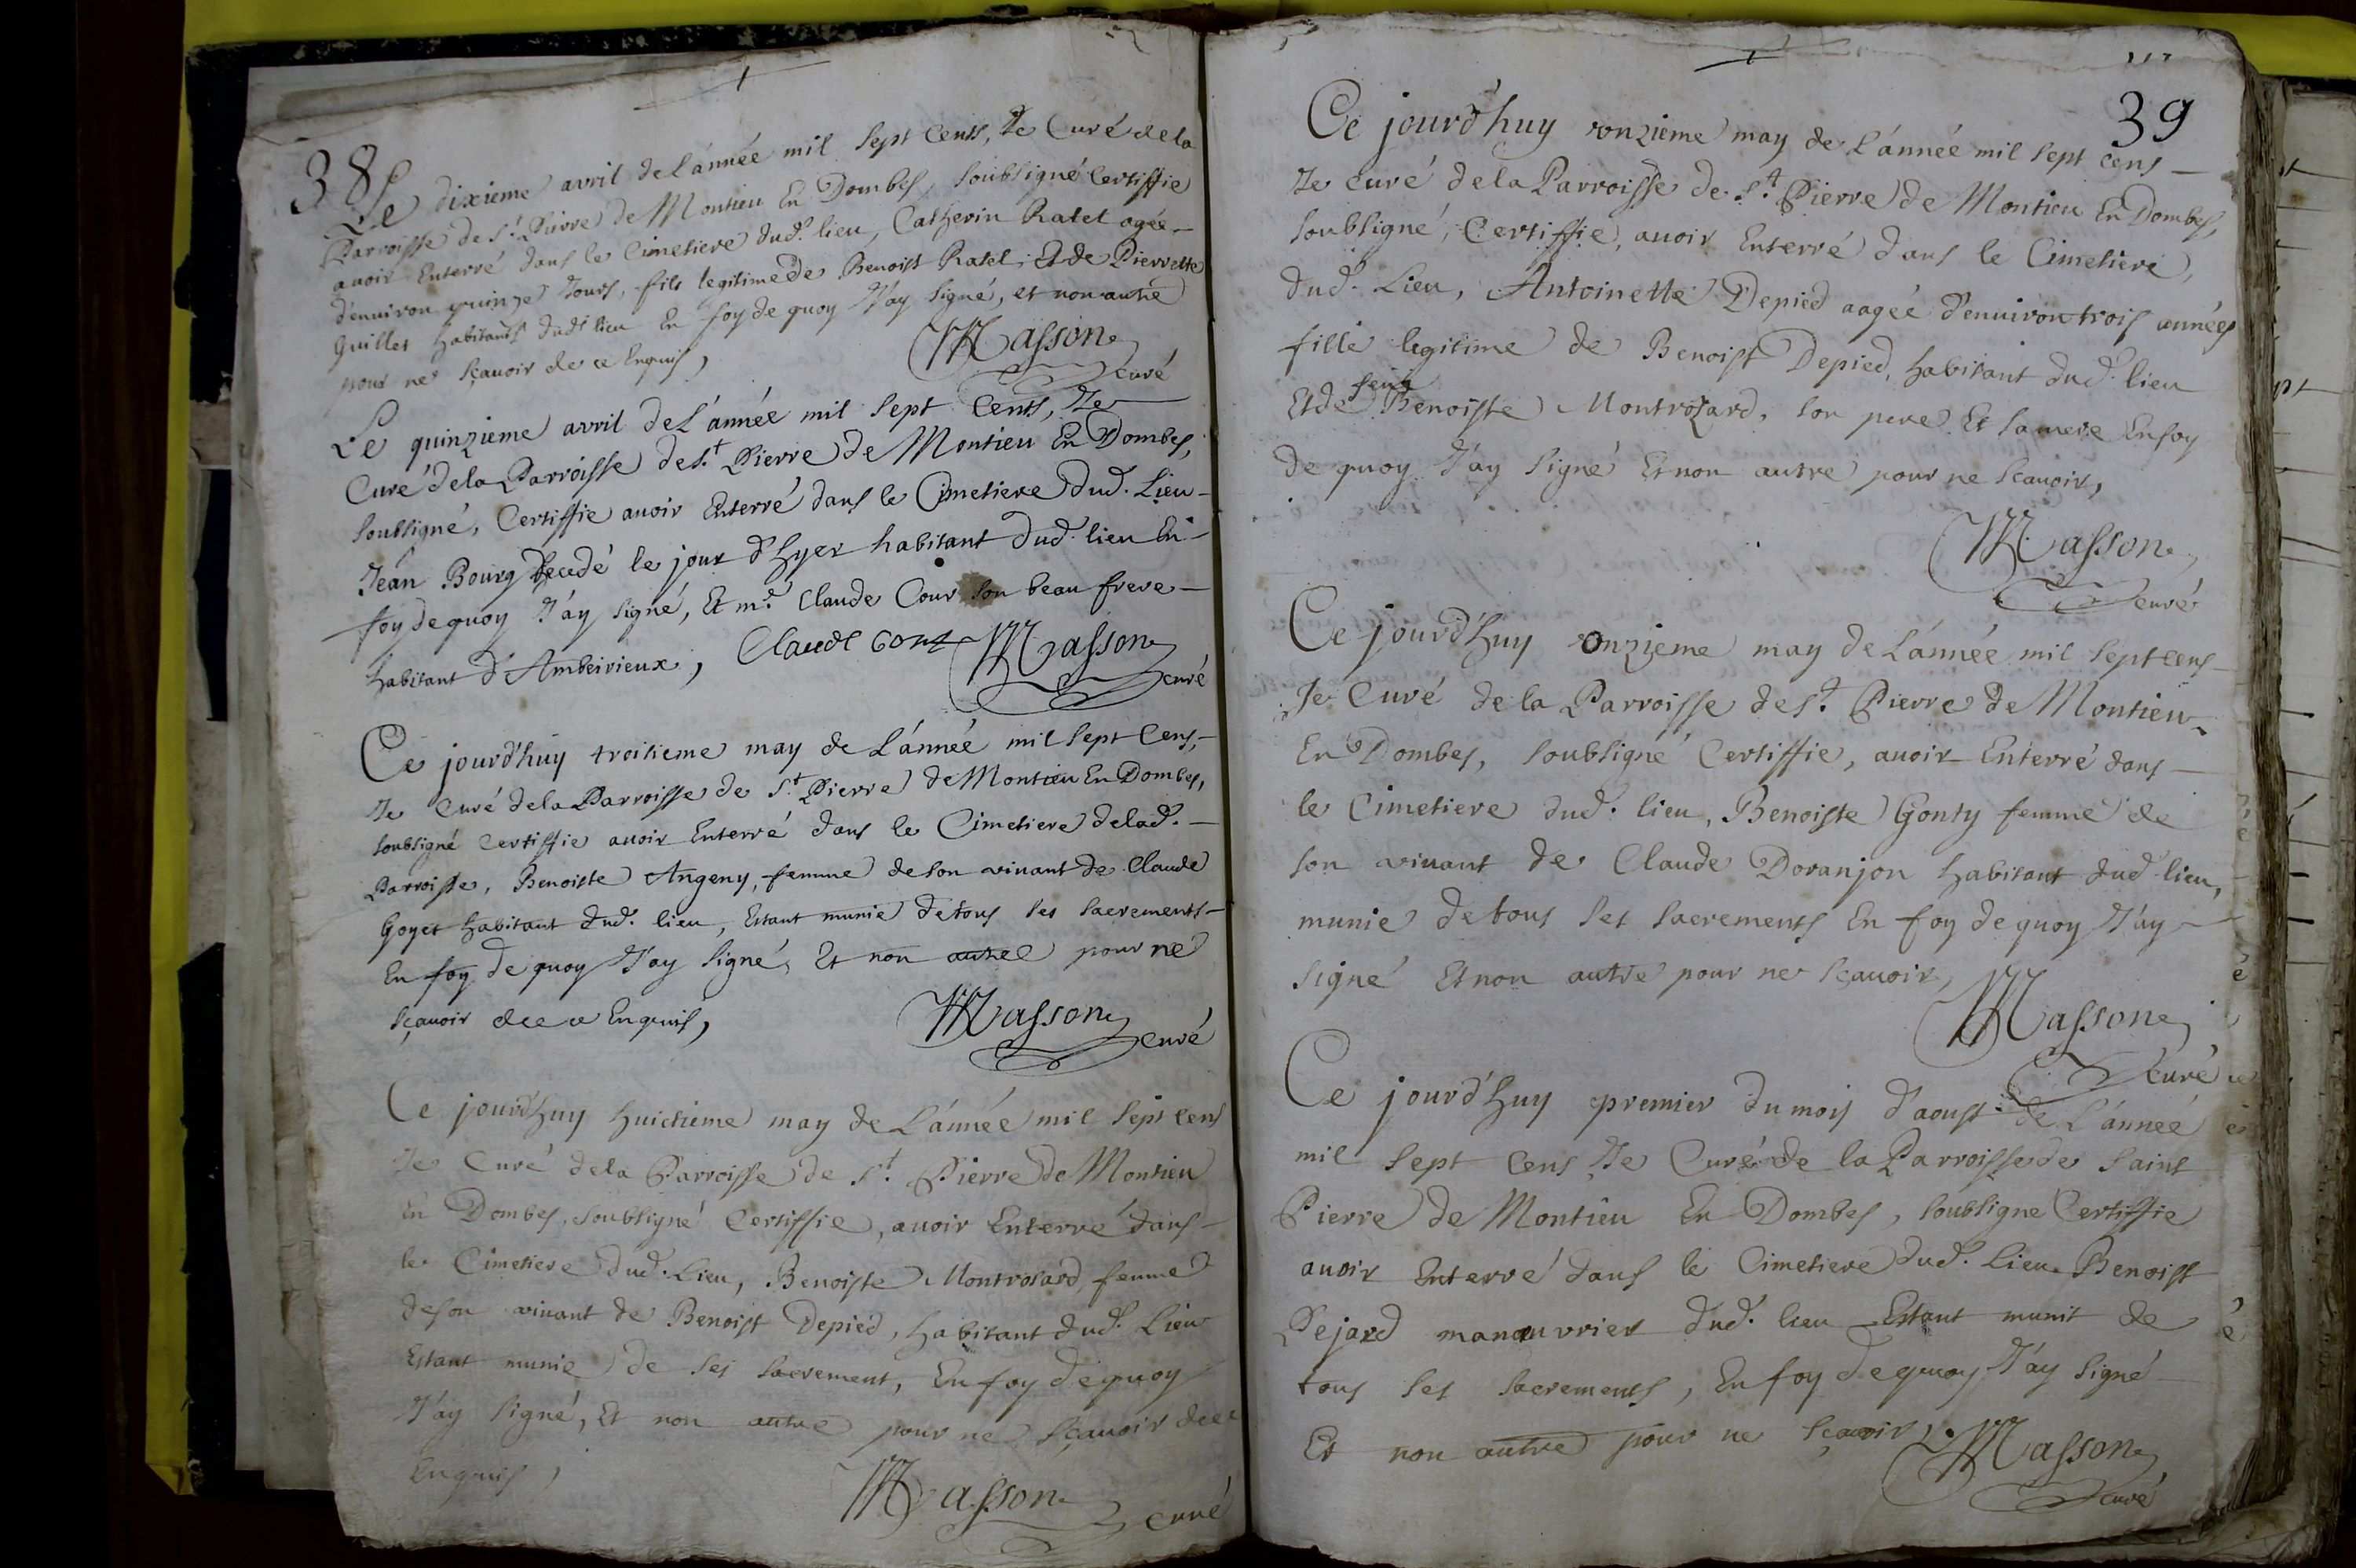 38
Le dixieme avril de L'année mil sept Cents, Je Curé de la
Parroisse de St. Pierre de Montieu En Dombes, soubsigné Certiffie
avoir Enterré dans le Cimetiere dud. lieu, Catherin Ratel agée
d'enuiron quinze Jours, fils legitime de Benoist Ratel, Et de Pierrette
Guillet habitants dud. lieu En foy de quoy J'ay signé, et non autre
pour ne sçauoir de ce Enquis,
Masson
curé
Le quinzieme avril de L'année mil sept Cents, Je
Curé de la Parroisse de St. Pierre de Montieu En Dombes,
soubsigné, Certiffie auoir Enterré dans le Cimetiere dud. Lieu
Jean Bourg decedé le jour d'hyer habitant dud. lieu En
foy de quoy J'ay signé, Et me. Claude Cour son beau frere
habitant d'Ambeirieux, Claude Masson
curé
Ce jourd'huy troisieme may de L'année mil sept Cens,
Je Curé de la Parroisse de St. Pierre de Montieu En Dombes,
soubsigné Certiffie auoir Enterré dans le Cimetiere de lad.
Parroisse, Benoiste Angeny, femme de son viuant de Claude
Goyet habitant dud. lieu, Estant munie de tous ses sacrements
En foy de quoy J'ay signé, Et non autre pour ne
sçauoir de ce Enquis,
Masson
curé
Ce jourd'huy huictieme may de L'année mil sept cens
Je Curé de la Parroisse de St. Pierre de Montieu
En Dombes, soubsigné Certiffie, auoir Enterré dans
le Cimetiere dud. Lieu, Benoiste Montrosard, femme
de son viuant de Benoist Depied, habitant dud. Lieu
Estant munie de ses sacrement, En foy de quoy
J'ay signé, Et non autre pour ne sçauoir de ce
Enquis,
Masson
curé
39
Ce jourd'huy onzieme may de L'année mil sept cens
Je curé de la Parroisse de St. Pierre de Montieu En Dombes,
soubsigné, Certiffie, auoir Enterré dans le Cimetiere,
dud. Lieu, Antoinette Depied aagée d'enuiron trois années
fille legitime de Benoist Depied, habitant dud. lieu
feüe
Et de Benoiste Montrozard, son pere Et sa mere En foy
de quoy J'ay signé Et non autre pour ne sçauoir,
Masson
curé
Ce jourd'huy onzieme may de L'année mil sept cens
Je Curé de la Parroisse de St. Pierre de Montieu
En Dombes, soubsigné Certiffie, auoir Enterré dans
le Cimetiere dud. lieu, Benoiste Gonty femme de
son viuant de Claude Doranjon habitant dud. lieu,
munie de tous ses sacrements En foy de quoy J'ay
signé Et non autre pour ne sçauoir,
Masson
Curé
Ce jourd'huy premier du mois d'aoust de L'année
mil sept Cens Je Curé de la Parroisse de Saint
Pierre de Montieu En Dombes, soubsigne Certiffie
auoir Enterré dans le Cimetiere dud. Lieu Benoist
Dejard manouvrier dud. lieu Estant munit de
tous ses sacrements, En foy de quoy J'ay signé
Et non autre pour ne sçauoir,
Masson
curé